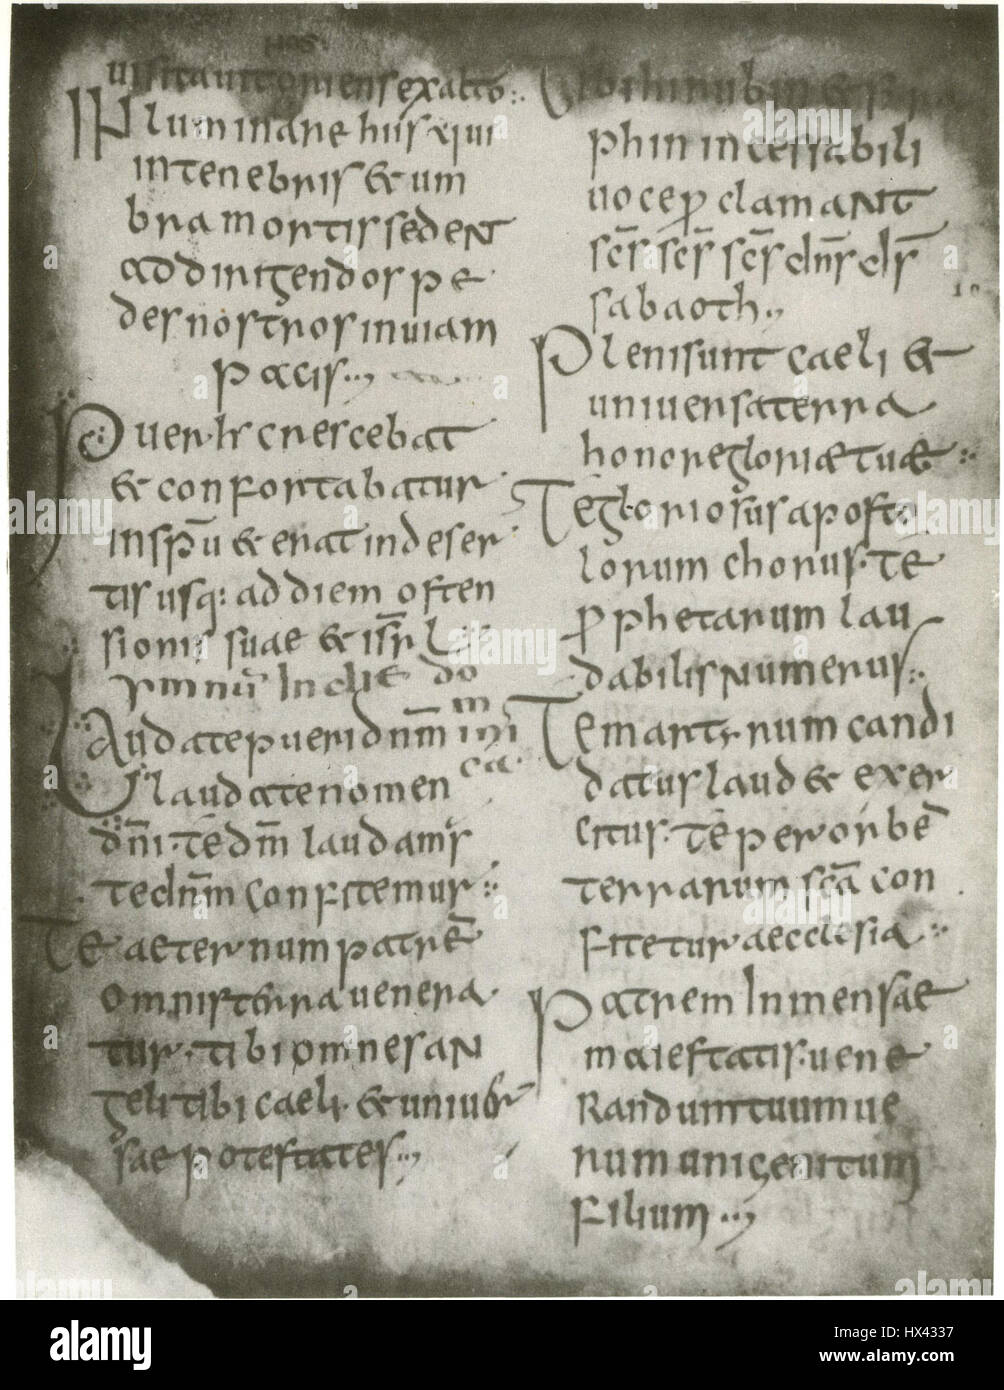 nos
uisitauit oriens ex alto:
INluminare his qui
in tenebris & um
bra mortis seden
ad diri gendos pe
des nostros in uiam
pacis..,
Puer hr crescebat
& confortabatur
in spū & erat in deser
tis usq: ad diem osten
sionis suae & isrl
ymnū In die do
mi
ni
ca
Laudate pueri dnm
laudate nomen
dm̄i. te dm̄ laudamr
te dnm confitemur:
Te aeternum patrē
omnis terra uenera
tur. tibi omnes an
geli tibi caeli & uniuer
sae potestates..,
Tibi hirubin & sera
phin incessabili
uoce p clamant
scs̄ scs̄ scs̄ dns̄ ds̄
sabaoth.,
Pleni sunt caeli &
uniuersa terra
honore gloriae tuae:
Te gloriosus aposto
lorum chorus. te
p phetarum lau
dabilis numerus:.
Te martyrum candi
datus laud & exer
citus. te per orbē
terrarum scā con
fitetur aecclesia:
Patrem Inmensae
maiestatis. uene
Randum tuum ue
rum unigenitum
filium..,
alamy
Image ID: HX4337
www.alamy.com